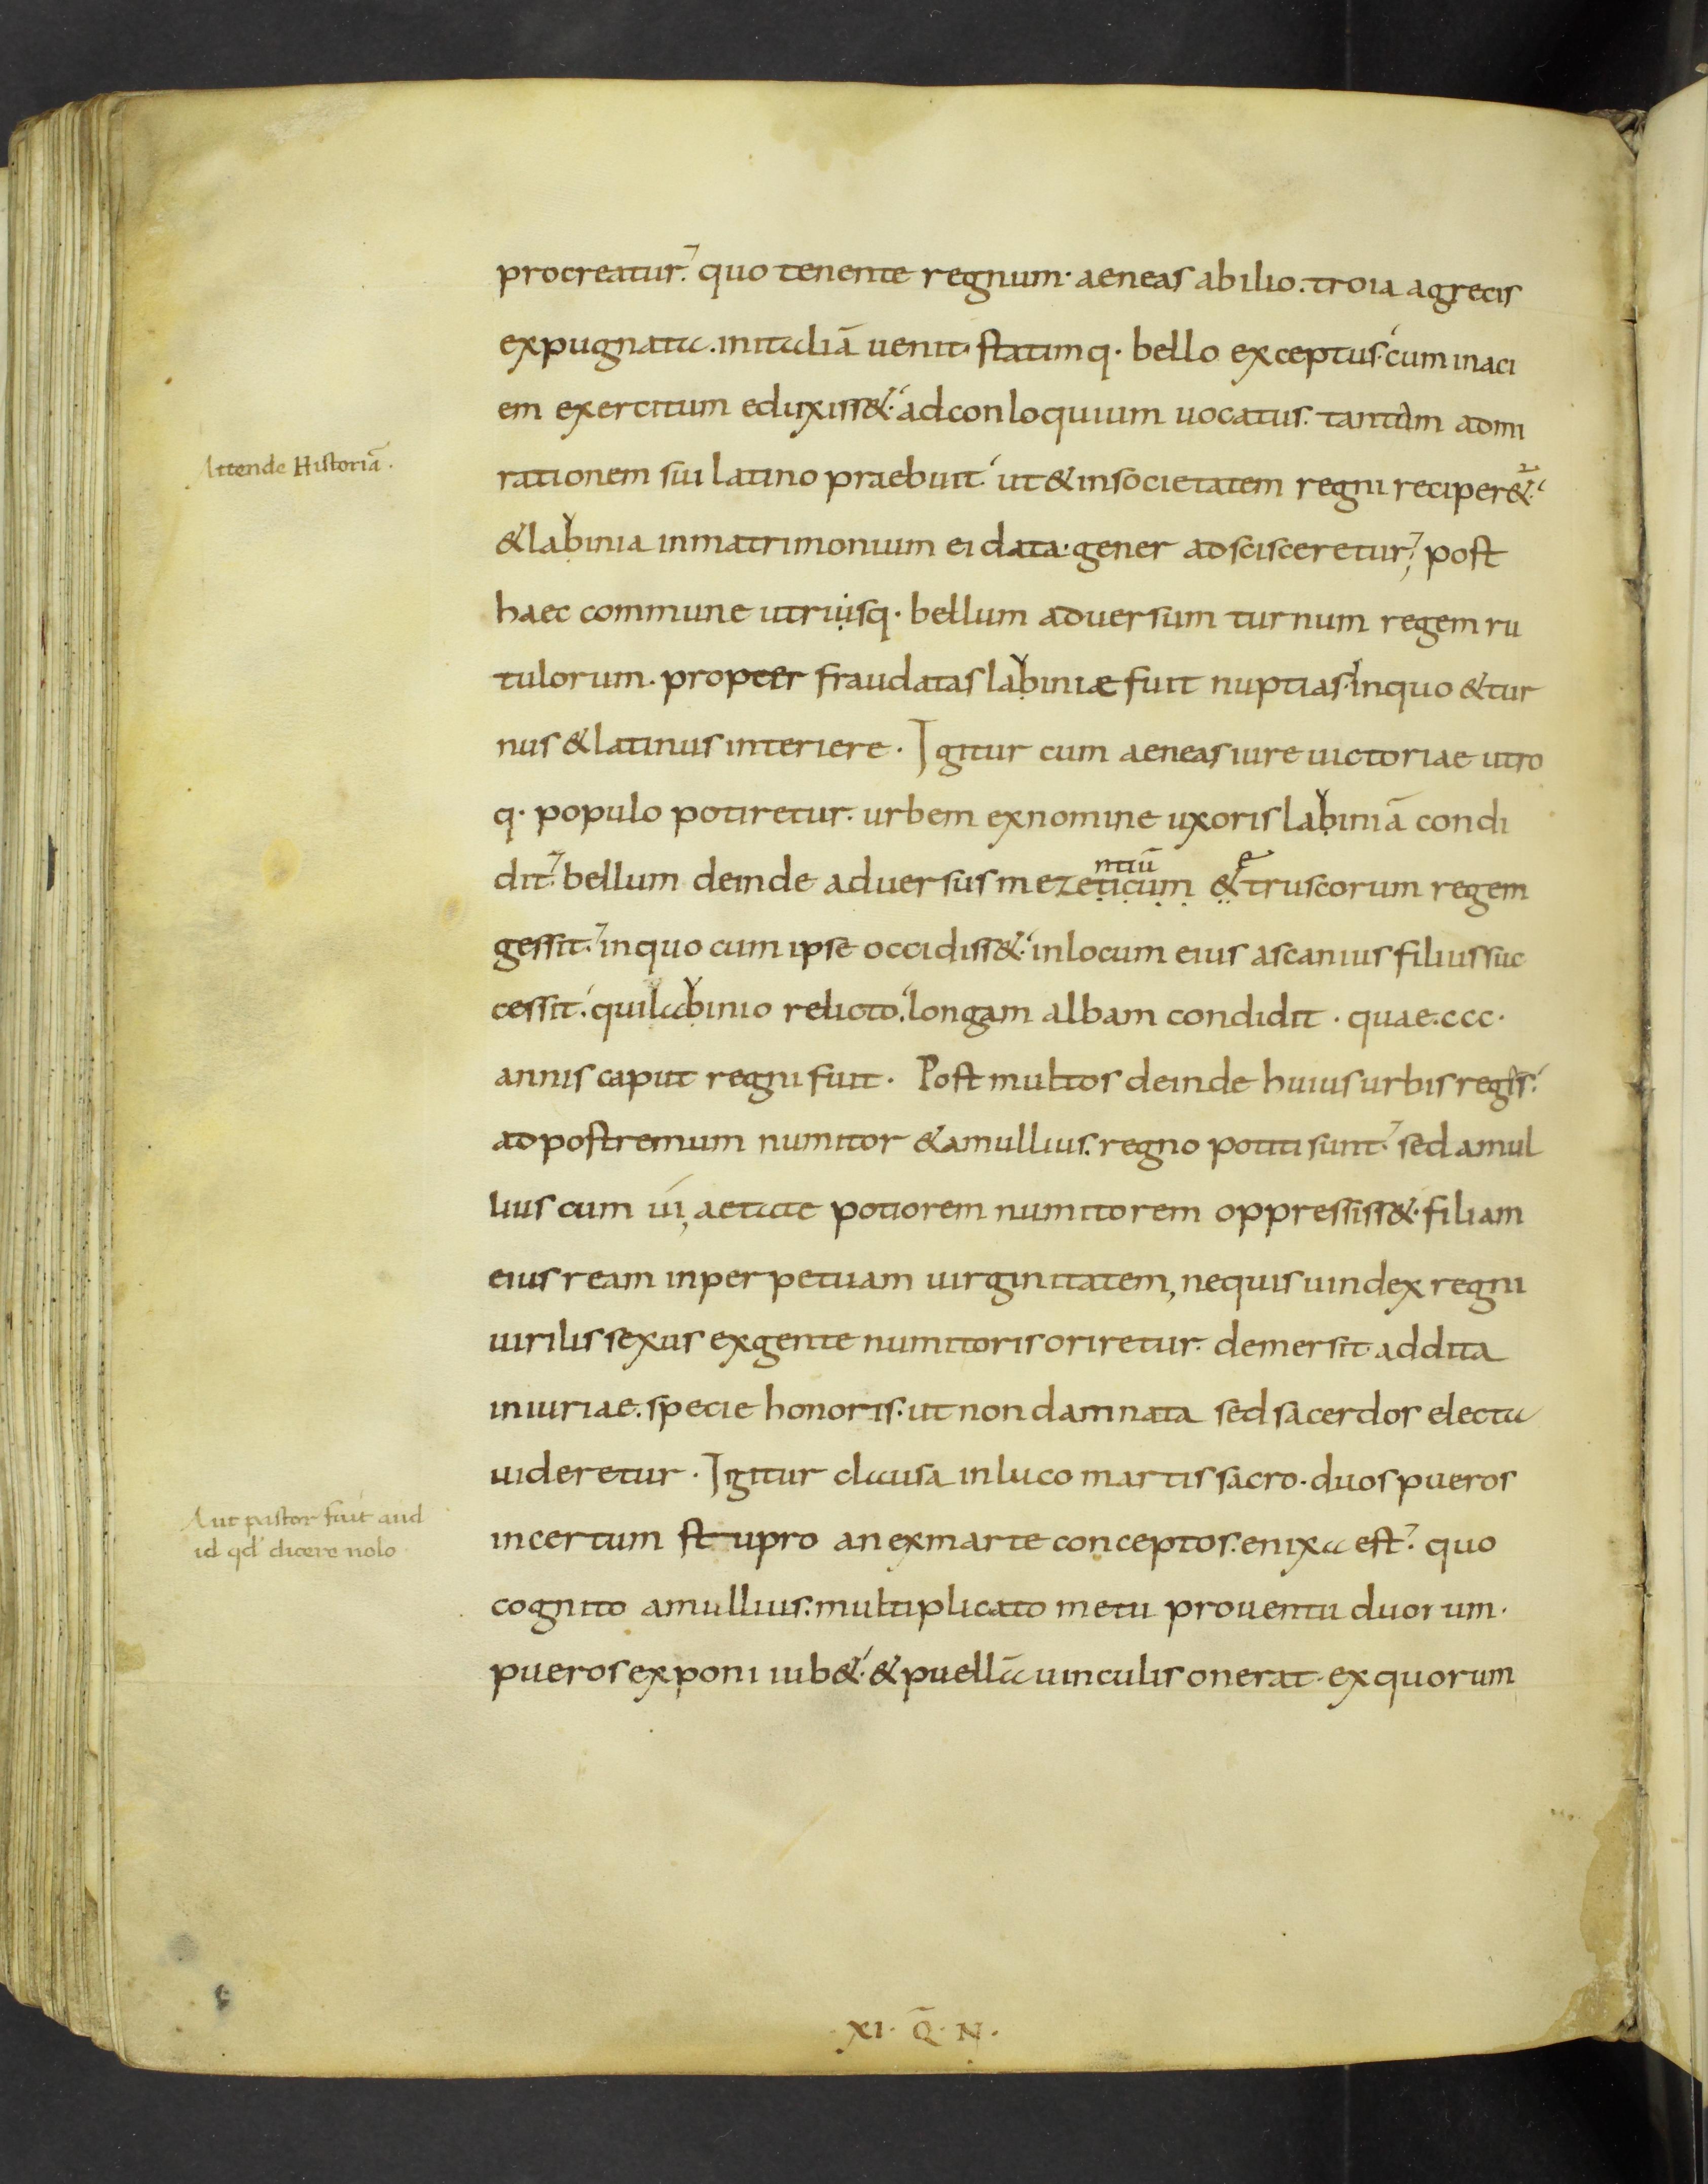 procreatur. quo tenente regnum. aeneas abilio. troia agrecis
expugnata. initaliā uenit. statimq. bello exceptus. cum inaci
em exercitum eduxiss&. adconloquium uocatus. tantum admi
Attende Historiā.
rationem sui latino praebuit. ut & insocietatem regni reciper&.
& labinia inmatrimonium ei data. gener adscisceretur; post
haec commune utriusq. bellum aduersum turnum regem ru
tulorum. propter fraudatas labiniae fuit nuptias. Inquo & tur
nus & latinus interiere. Igitur cum aeneas iure uictoriae utro
q. populo potiretur. urbem exnomine uxoris labiniā condi
dit. bellum deinde aduersus mezeticum &truscorum regem
gessit. inquo cum ipse occidiss&. inlocum eius ascanius filius suc
cessit. qui labinio relicto. longam albam condidit. quae. ccc.
annis caput regni fuit. Post multos deinde huius urbis reges.
adpostremum numitor & amullius. regno potiti sunt. sed amul
lius cum ui, aetate potiorem numitorem oppressiss&. filiam
eius ream inperpetuam uirginitatem, nequis uindex regni
uirilis sexus exgente numitoris oriretur. demersit. addita
iniuriae. specie honoris. ut non damnata sed sacerdos electa
uideretur. Igitur clausa inluco martis sacro. duos pueros
Aut pastor fuit aud
id qd dicere nolo
incertum stupro an exmarte conceptos. enixa est. quo
cognito amullius. multiplicato metu prouentu duorum.
pueros exponi iub&. & puellā uinculis onerat. ex quorum
XI. Q̄. N.